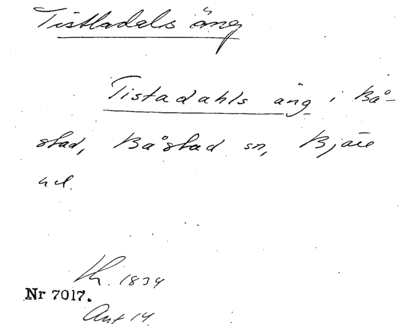 Tistladals äng
Tistadahls äng i Bå-
stad, Båstad sn, Bjäre
hd.
Lk. 1834
Nr 7017.
Akt 14.